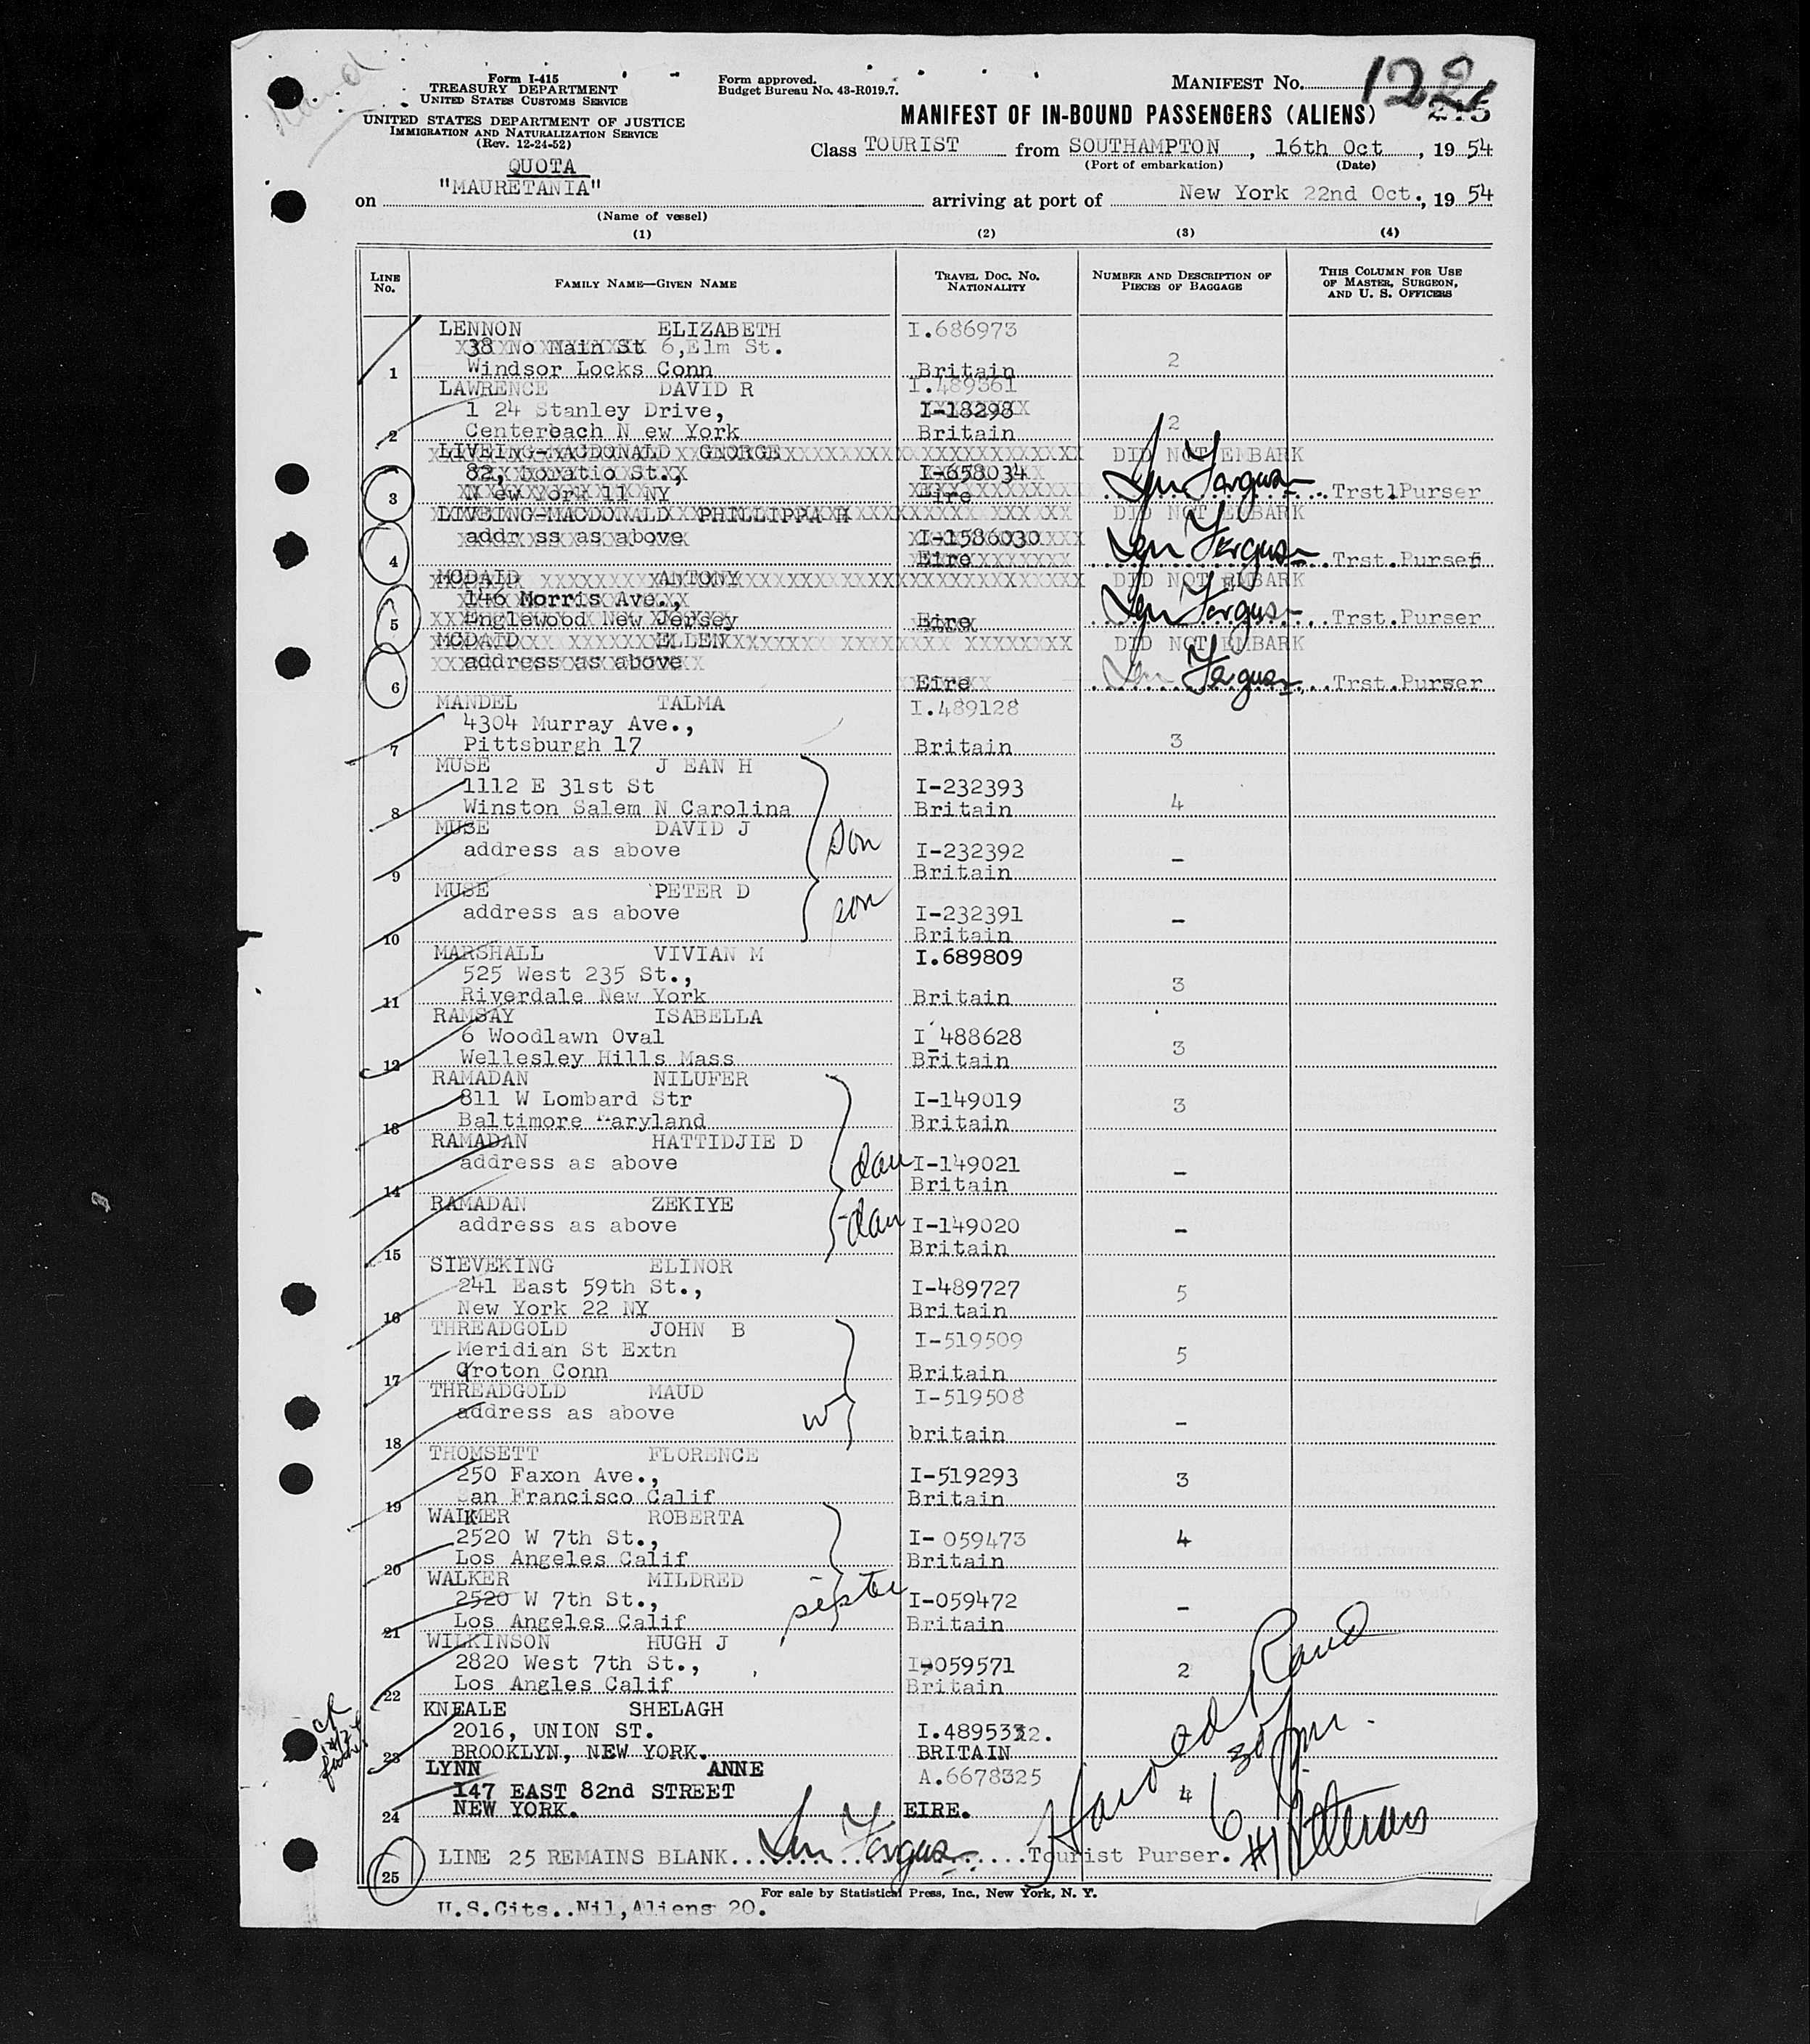 Form I-415
TREASURY DEPARTMENT
UNITED STATES CUSTOMS SERVICE
UNITED STATES DEPARTMENT OF JUSTICE
IMMIGRATION AND NATURALIZATION SERVICE
(Rev. 12-24-52)
Form approved.
Budget Bureau No. 43-R019.7.
MANIFEST No. 122
215
MANIFEST OF IN-BOUND PASSENGERS (ALIENS)
Class TOURIST from SOUTHAMPTON, 16th Oct, 1954
(Port of embarkation) (Date)
QUOTA
on "MAURETANIA" arriving at port of New York 22nd Oct., 1954
(Name of vessel)
(1) (2) (3) (4)
LINE No. FAMILY NAME—GIVEN NAME TRAVEL DOC. No. NATIONALITY NUMBER AND DESCRIPTION OF PIECES OF BAGGAGE THIS COLUMN FOR USE OF MASTER, SURGEON, AND U. S. OFFICERS
LENNON ELIZABETH I.686973
38 No Main St 6,Elm St.
1 Windsor Locks Conn Britain 2
LAWRENCE DAVID R I.489361
1 24 Stanley Drive, I-18298
2 Centerbach N ew York Britain 2
LIVEING-MACDONALD GEORGE DID NOT EMBARK
82, Horatio St., I-658034
3 N ew York 11 NY Eire Len Ferguson Trst.Purser
LIVEING-MACDONALD PHILLIPPA H DID NOT EMBARK
addr ss as above I-1586030
4 Eire Len Ferguson Trst.Purser
MCDAID ANTONY DID NOT EMBARK
146 Morris Ave.,
5 Englewood New Jersey Eire Len Ferguson Trst.Purser
MCDAID ELLEN DID NOT EMBARK
address as above
6 Eire Len Ferguson Trst.Purser
MANDEL TALMA I.489128
4304 Murray Ave.,
7 Pittsburgh 17 Britain 3
MUSE J EAN H
1112 E 31st St I-232393
8 Winston Salem N Carolina Britain 4
MUSE DAVID J son
address as above I-232392
9 Britain -
MUSE PETER D son
address as above I-232391
10 Britain -
MARSHALL VIVIAN M I.689809
525 West 235 St.,
11 Riverdale New York Britain 3
RAMSAY ISABELLA
6 Woodlawn Oval I-488628
12 Wellesley Hills Mass Britain 3
RAMADAN NILUFER
811 W Lombard Str I-149019
13 Baltimore Maryland Britain 3
RAMADAN HATTIDJIE D dau
address as above I-149021
14 Britain -
RAMADAN ZEKIYE dau
address as above I-149020
15 Britain -
SIEVEKING ELINOR
241 East 59th St., I-489727
16 New York 22 NY Britain 5
THREADGOLD JOHN B I-519509
Meridian St Extn
17 Groton Conn Britain 5
THREADGOLD MAUD I-519508
address as above w
18 britain -
THOMSETT FLORENCE
250 Faxon Ave., I-519293
19 San Francisco Calif Britain 3
WALKER ROBERTA
2520 W 7th St., I- 059473
20 Los Angeles Calif Britain 4
WALKER MILDRED sister
2520 W 7th St., I-059472
21 Los Angeles Calif Britain -
WILKINSON HUGH J
2820 West 7th St., I-059571
22 Los Angles Calif Britain 2
KNEALE SHELAGH
2016, UNION ST. I.489532.
23 BROOKLYN, NEW YORK. BRITAIN
LYNN ANNE A.6678325
147 EAST 82nd STREET
24 NEW YORK. EIRE. 4
Harold Rand
6 30 pm.
25 LINE 25 REMAINS BLANK. Len Ferguson Tourist Purser.
For sale by Statistical Press, Inc., New York, N. Y.
U.S.Cits..Nil,Aliens 20.